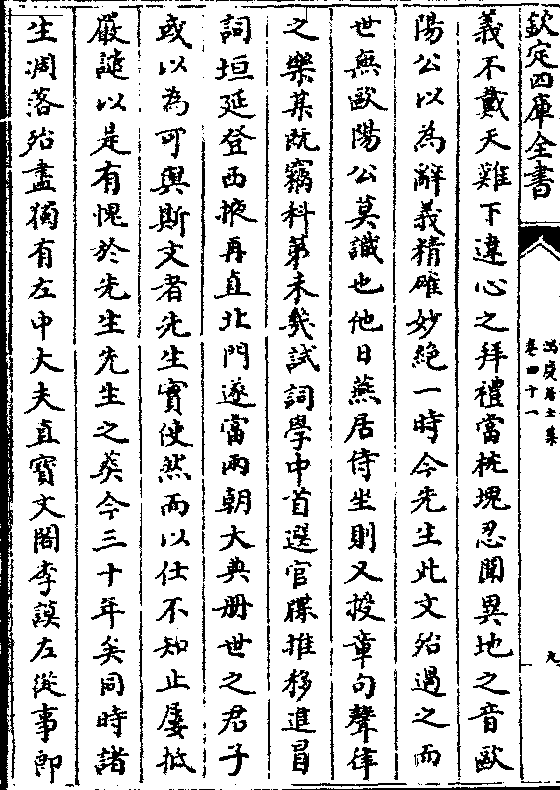 欽定四庫全書
卷四十一
九
義不戴天難下違心之拜禮當枕塊忍聞異地之音歐
陽公以為辭義精確妙絕一時今先生此文殆過之而
世無歐陽公莫識也他日燕居侍坐則又授章句聲律
之樂某既竊科第未幾試詞學中首選官牒推移進冒
詞垣延登西掖再直北門遂當兩朝大典册世之君子
或以為可與斯文者先生實使然而以仕不知止屢抵
嚴譴以是有愧於先生先生之葬今三十年矣同時諸
生凋落殆盡獨有左中大夫直寳文閣李謨左從事郎